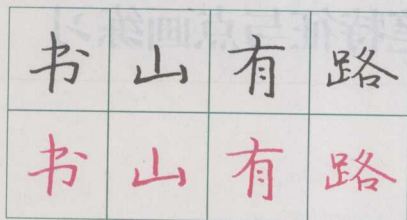 书山有路
书山有路